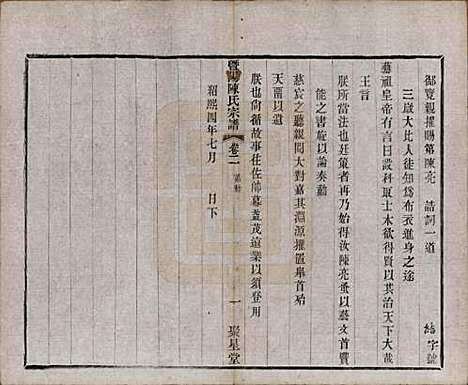 御覽親擢賜第陳亮　誥詞一道
三歲大比人徒知爲布衣進身之途
藝祖皇帝有言曰設科取士本欲得賢以共治天下大哉
王言
朕所當法也廷策者再乃始得汝陳亮蚤以藝文首賢
能之書旋以論奏動
慈宸之聽親閱大對嘉其淵源擢置舉首殆
天留以遺
朕也尙循故事往佐帥幕益茂遠業以須登用
紹熙四年七月　日下
暨陽陳氏宗譜
卷二
一
聚星堂